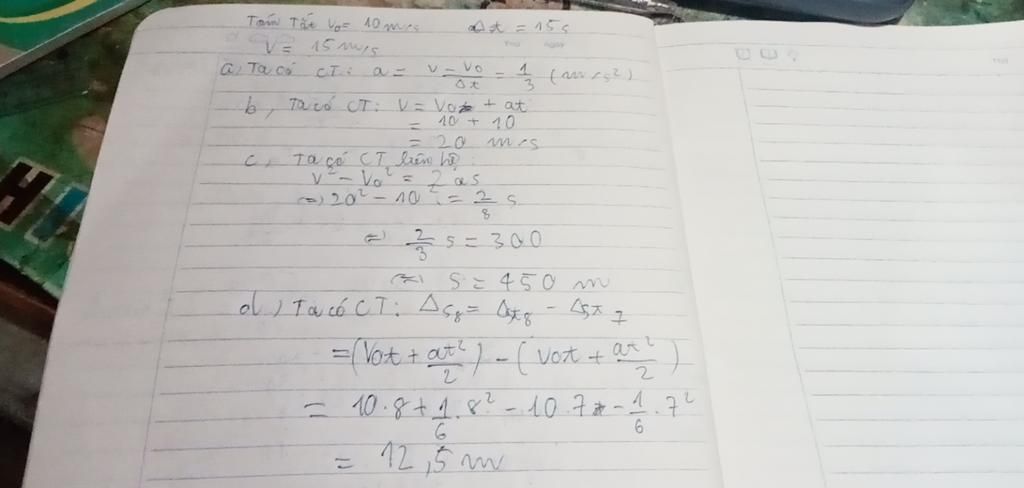 Tóm Tắt V₀ = 10 m/s Δt = 15 s
V = 15 m/s
a, Ta có CT: a = (V - V₀)/Δt = 1/3 (m/s²)
b, Ta có CT: V = V₀ + at
= 10 + 10
= 20 m/s
c, Ta có CT liên hệ:
V² - V₀² = 2as
⇔ 20² - 10² = 2/8 s
⇔ 2/3 s = 300
⇔ s = 450 m
d, Ta có CT: Δs₈ = Δst₈ - Δst₇
= (V₀t + at²/2) - (V₀t + at²/2)
= 10.8 + 1/6 . 8² - 10.7 - 1/6 . 7²
= 12,5 m